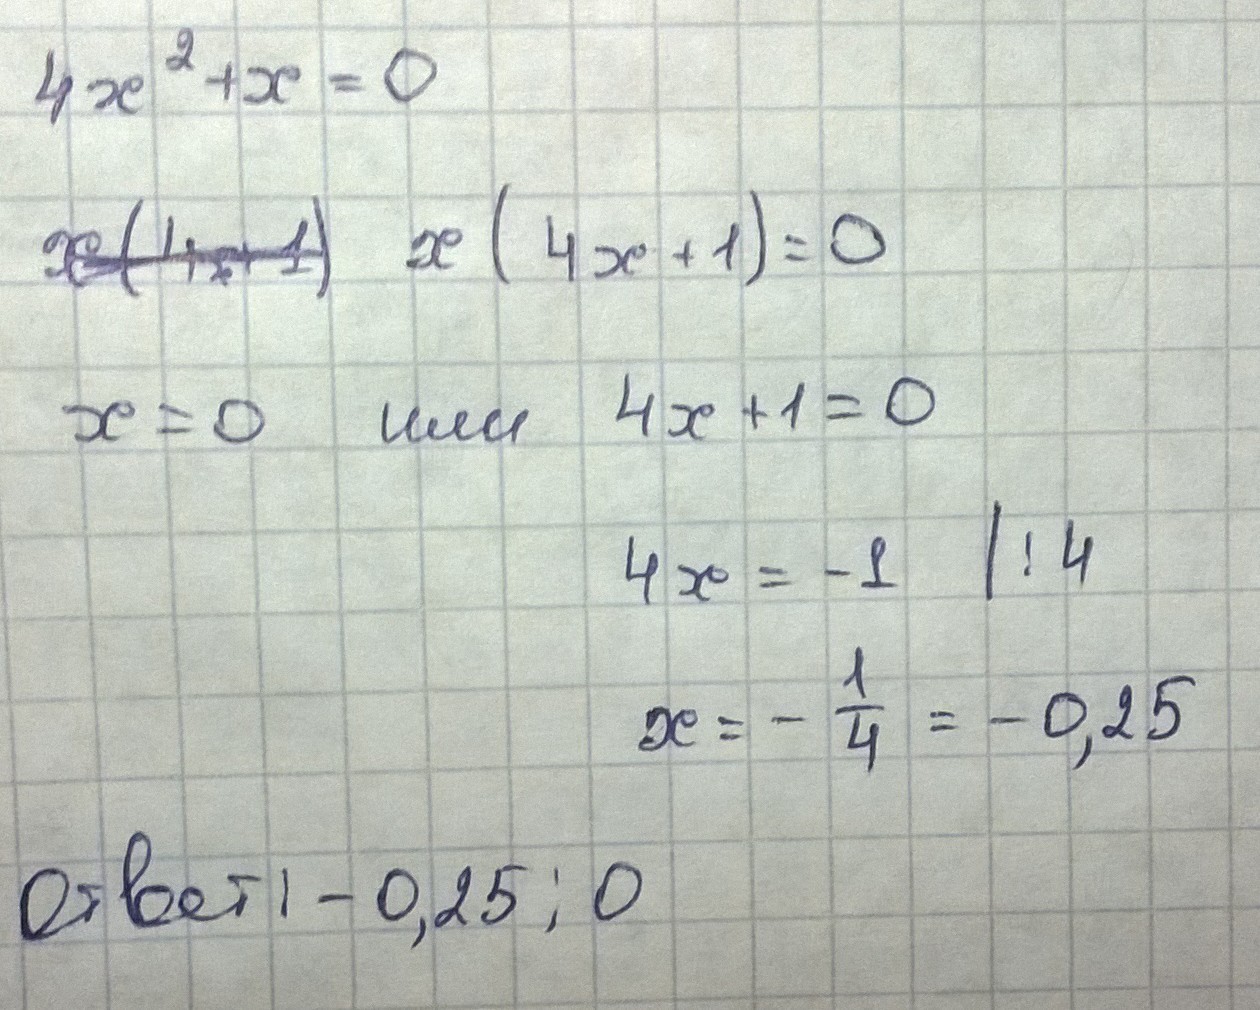 4x² + x = 0
x(4x+1) x(4x+1)=0
x = 0 или 4x+1=0
4x = -1 |:4
x = - 1/4 = - 0,25
Ответ: - 0,25; 0